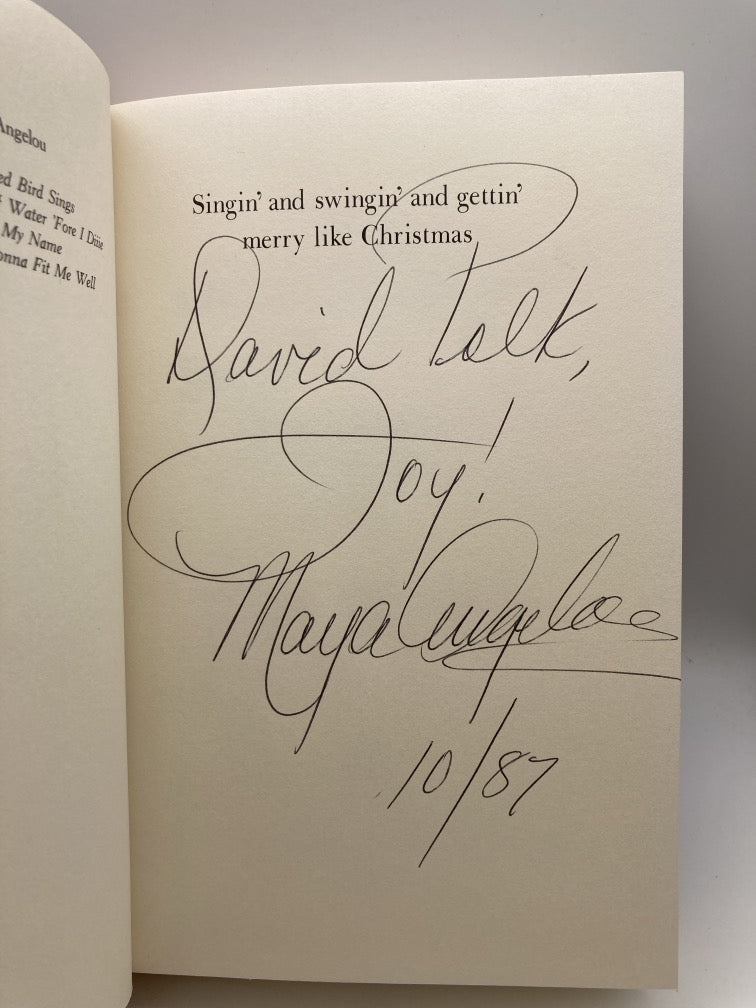 Angelou
ed Bird Sings
Water 'Fore I Diiie
My Name
onna Fit Me Well
Singin' and swingin' and gettin'
merry like Christmas
David Polk,
Joy!
Maya Angelou
10/87